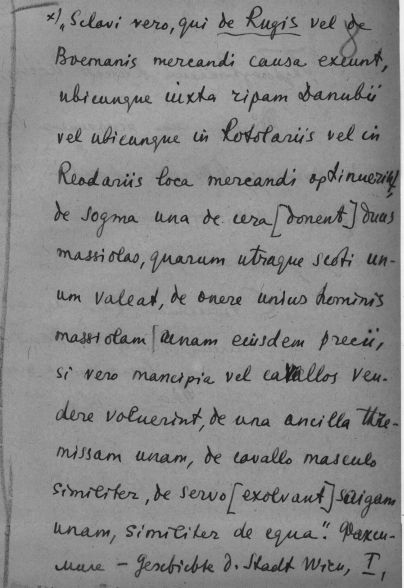 x) „Sclavi vero, qui de Rugis vel de
Boemanis mercandi causa exeunt,
ubicunque iuxta ripam Danubii
vel ubicunque in Rotolariis vel in
Reodariis loca mercandi optinuerint,
de sogma una de cera [donent] duas
massiolas, quarum utraque scoti un-
um valeat, de onere unius hominis
massiolam unam eiusdem precii,
si vero mancipia vel cavallos ven-
dere voluerint, de una ancilla thre-
missam unam, de cavallo masculo
similiter, de servo [exolvant] saigam
unam, similiter de equa“.
mure – Geschichte d. Stadt Wien, I,